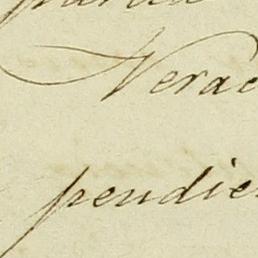 Verac
pendie